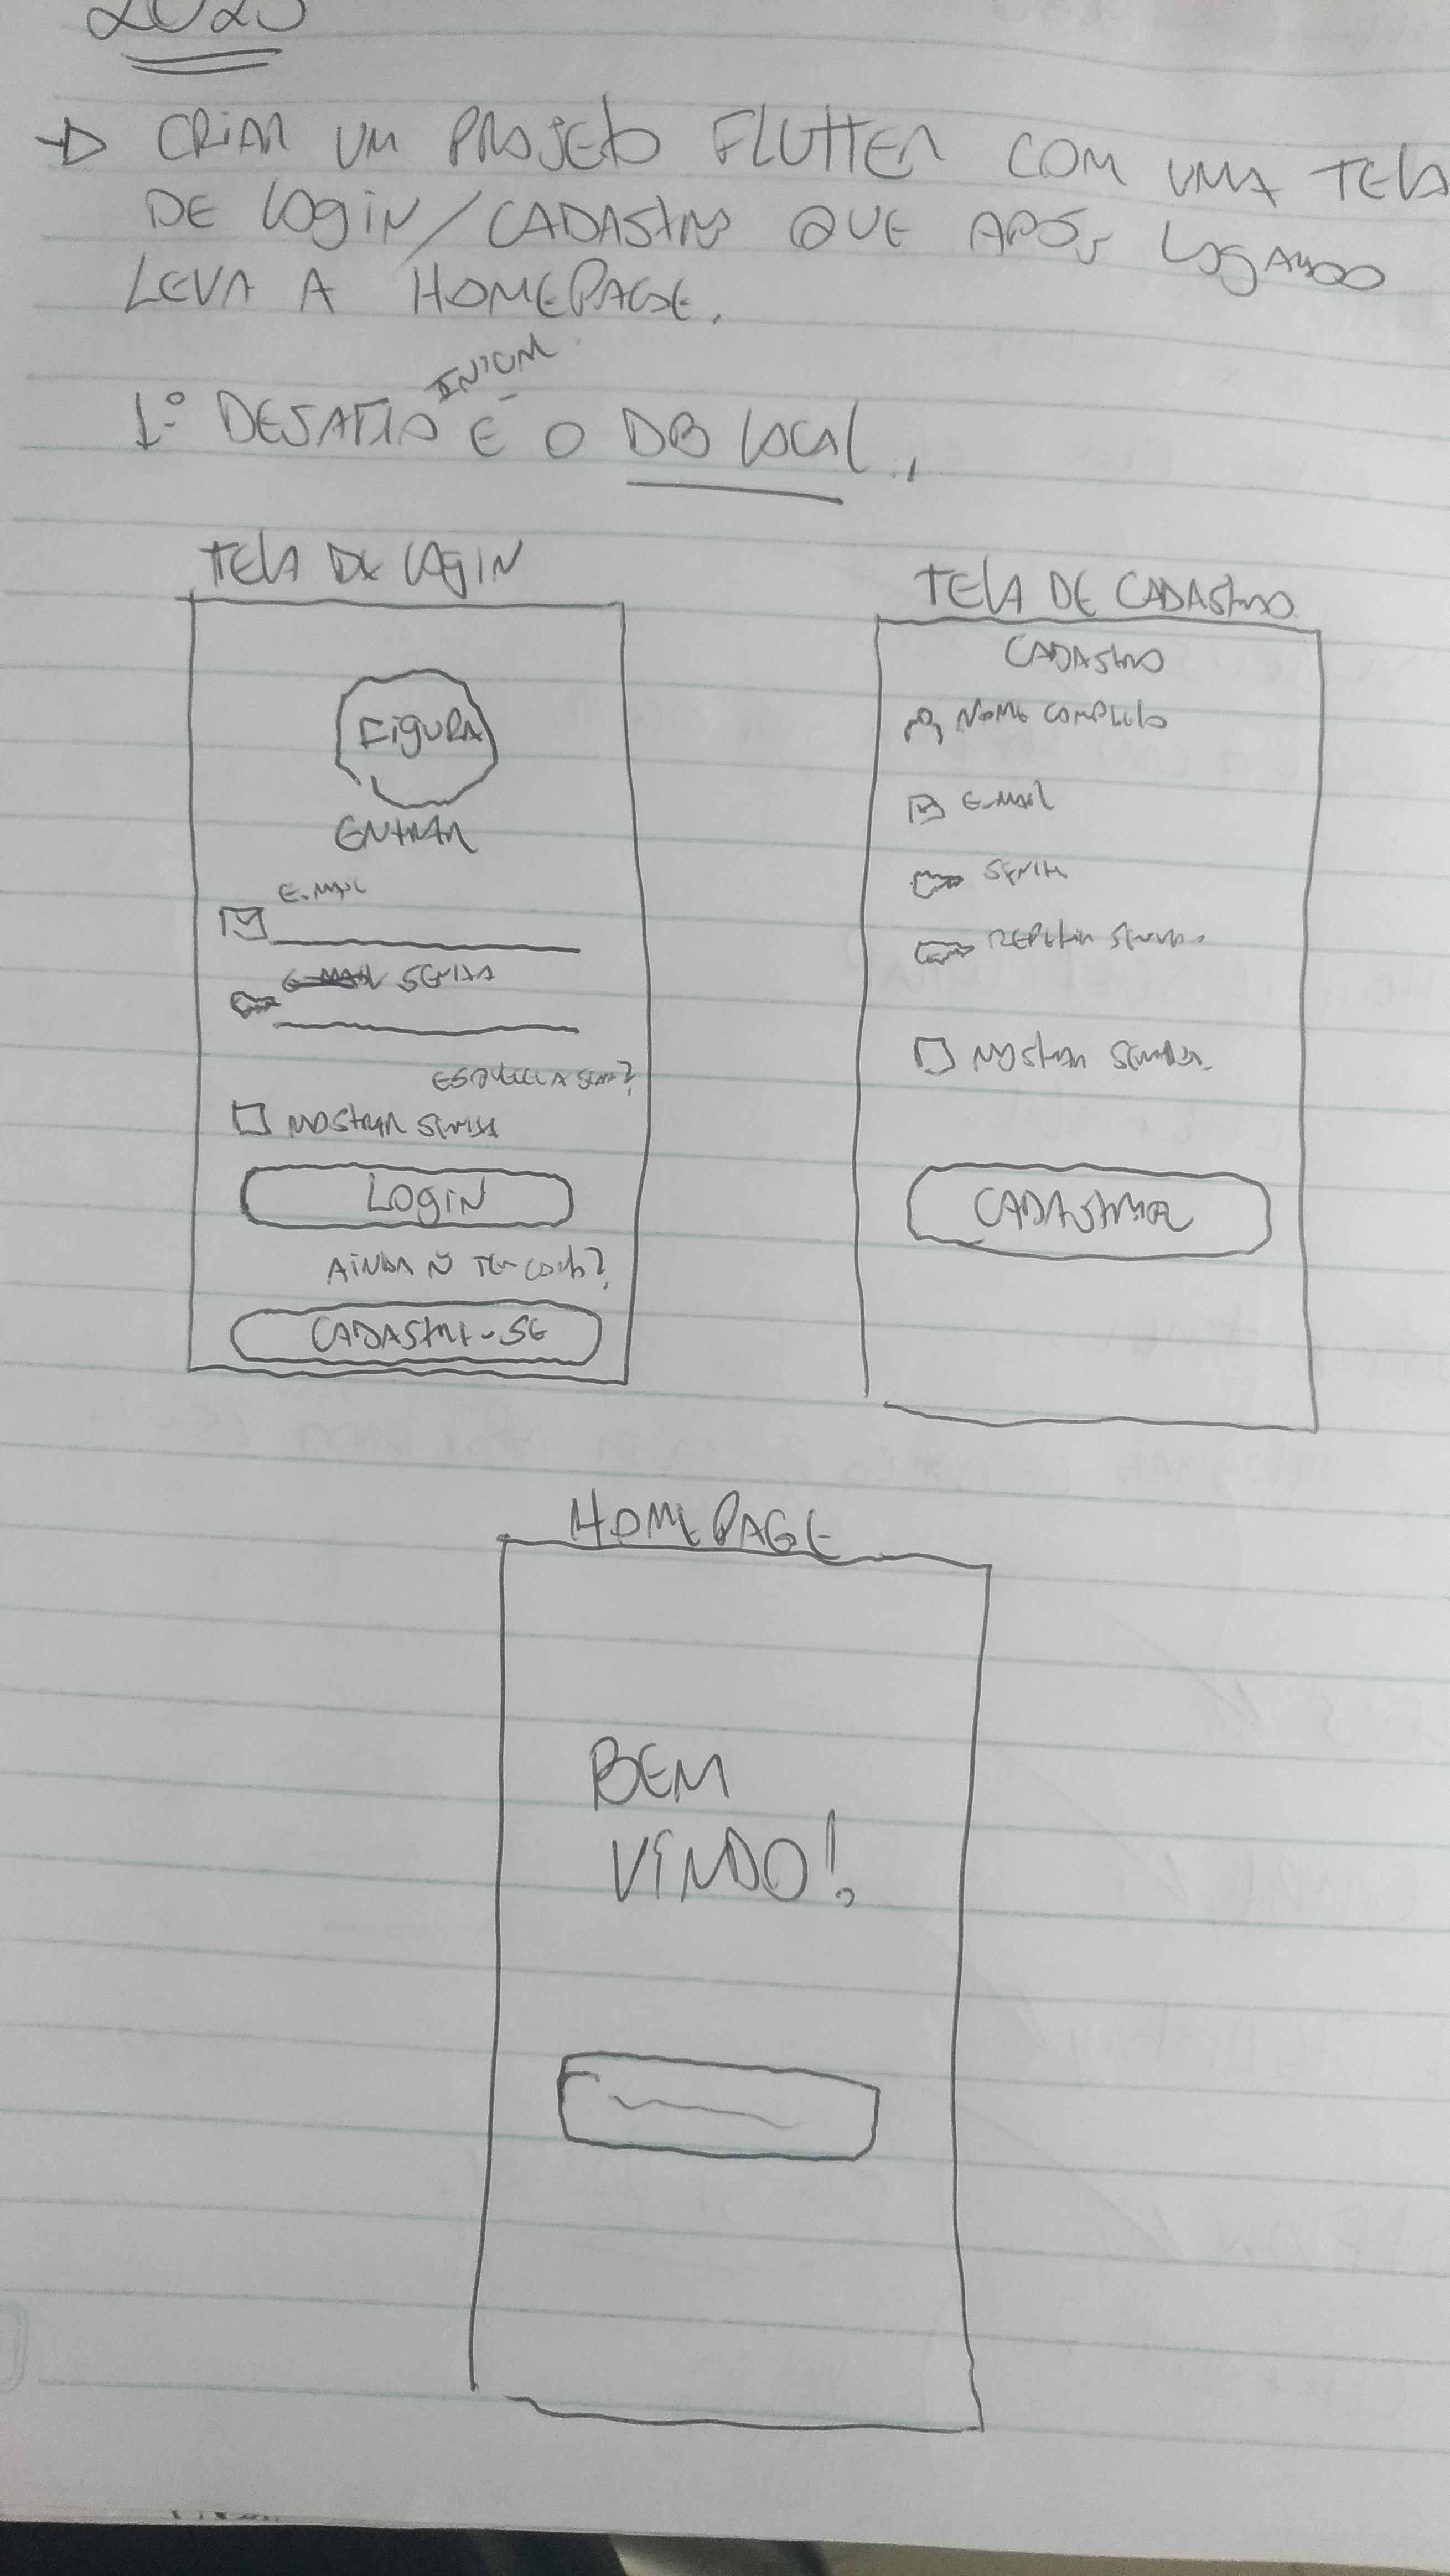 2023
→ CRIAR UM PROJETO FLUTTER COM UMA TELA
DE LOGIN/CADASTRO QUE APÓS LOGANDO
LEVA A HOMEPAGE.
1º DESAFIO É O DB LOCAL.
TELA DE LOGIN
FIGURA
ENTRAR
E-MAIL
SENHA
ESQUECI A SENHA?
MOSTRAR SENHA
LOGIN
AINDA Ñ TEM CONTA?
CADASTRE-SE
TELA DE CADASTRO
CADASTRO
NOME COMPLETO
E-MAIL
SENHA
REPETIR SENHA
MOSTRAR SENHA
CADASTRAR
HOMEPAGE
BEM
VINDO!